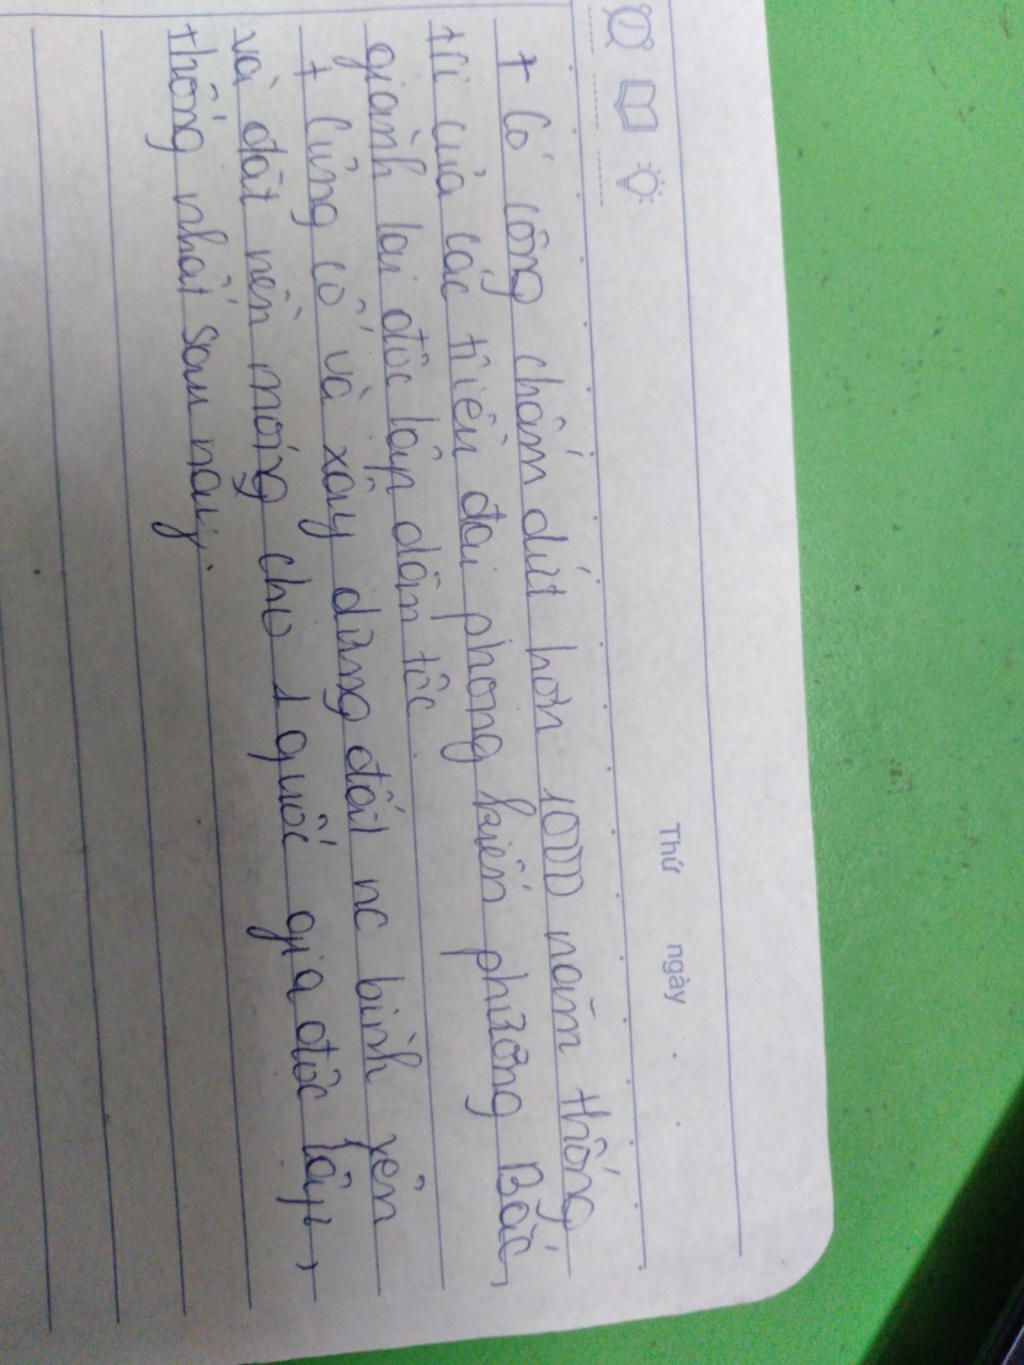 Thứ ngày
+ Có công chấm dứt hơn 1000 năm thống
trị của các triều đại phong kiến phương Bắc,
giành lại độc lập dân tộc.
+ Củng cố và xây dựng đất nc bình yên
và đặt nền móng cho 1 quốc gia độc lập,
thống nhất sau này.